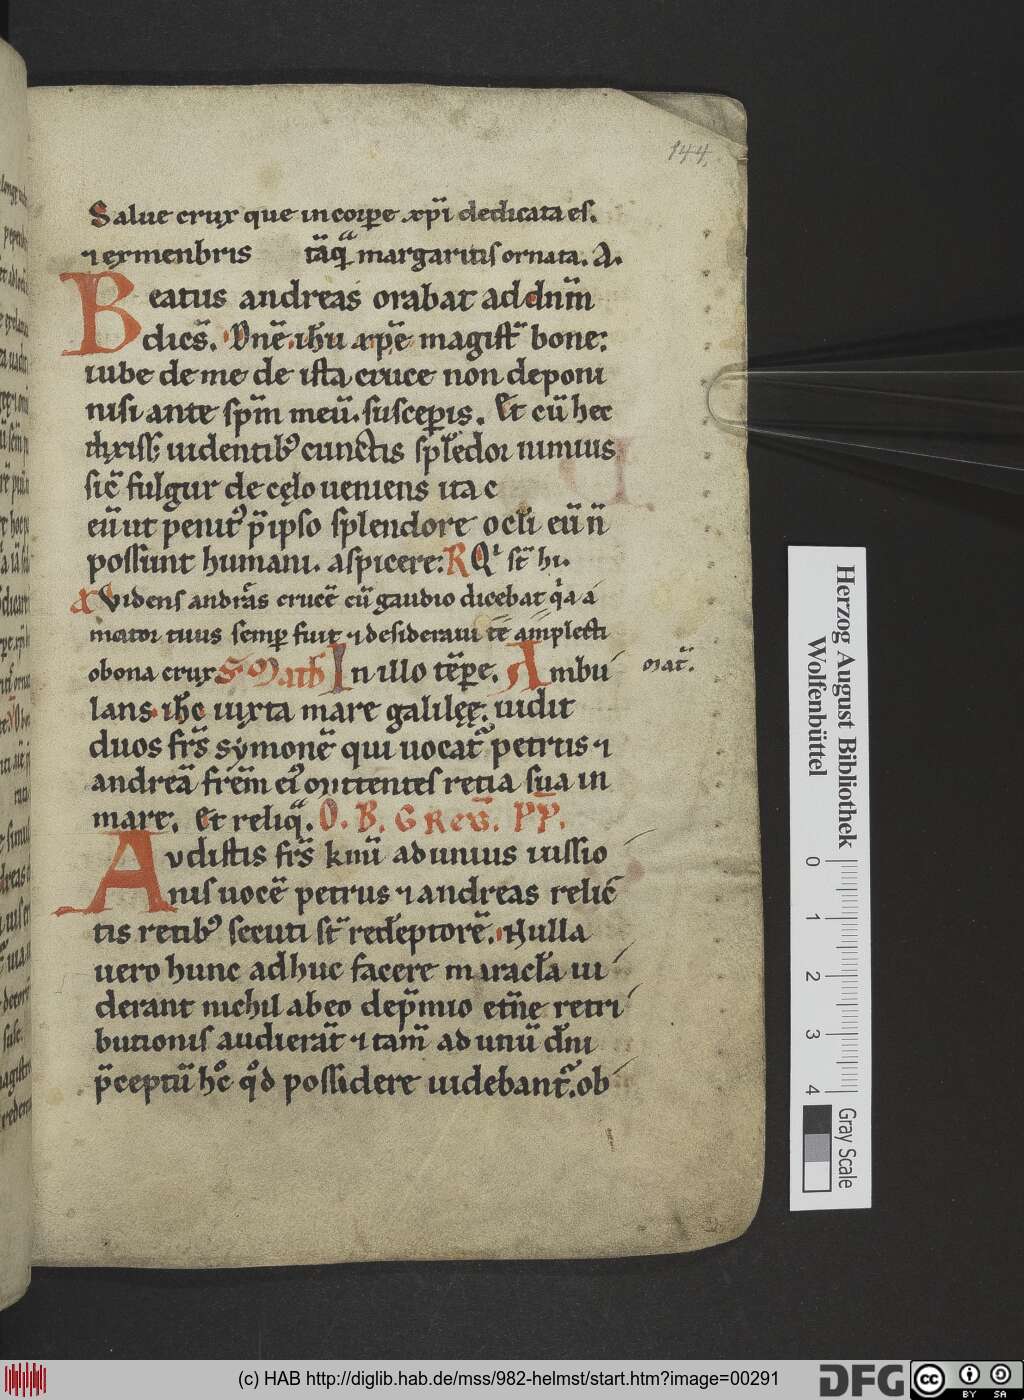 144.
Salue crux que in corpe xp̄i dedicata es.
⁊ ex menbris tāq̄ᵃ margaritis ornata. A.
Beatus andreas orabat ad dn̄m
dicēs. Dn̄e ih̄u xp̄e magist̄ bone:
iube de me de ista cruce non deponi
nisi ante sp̄m meū. susceperis. Et cū hec
uidentibꝰ cunctis splēdor nimius
sic̄ fulgur de cęlo ueniens ita c
eū ut penitꝰ p̄ ipso splendore oc̄li eū n̄
possunt humani. aspicere: R Qⁱ st̄ hi.
Ꜹ Videns andrās crucē cū gaudio dicebat qⁱa a
mator tuus semꝑ fuit ⁊ desideraui te amplecti
o bona crux S. Math In illo tēꝑe. Ambu Mat̄.
lans ih̄c iuxta mare galilęę. uidit
duos fr̄s symonē qui uocat᷑ petrus ⁊
andreā frēm eiꝰ mittentes retia sua in
mare. Et reliq̄. O. B. GREG̅. PP̅.
Audistis fr̄s km̄i ad unius iussio
nis uocē petrus ⁊ andreas relic̄
tis retibꝰ secuti st̄ redēptorē. Nulla
uero hunc adhuc facere miracl̄a ui
derant nichil ab eo de p̄mio et̄ne retri
butionis audierāt ⁊ tam̄ ad unū dn̄i
p̄ceptū hͦc qͦd possidere uidebant᷑. ob
Herzog August Bibliothek
Wolfenbüttel
0 1 2 3 4
Gray Scale
(c) HAB http://diglib.hab.de/mss/982-helmst/start.htm?image=00291
DFG
cc BY SA